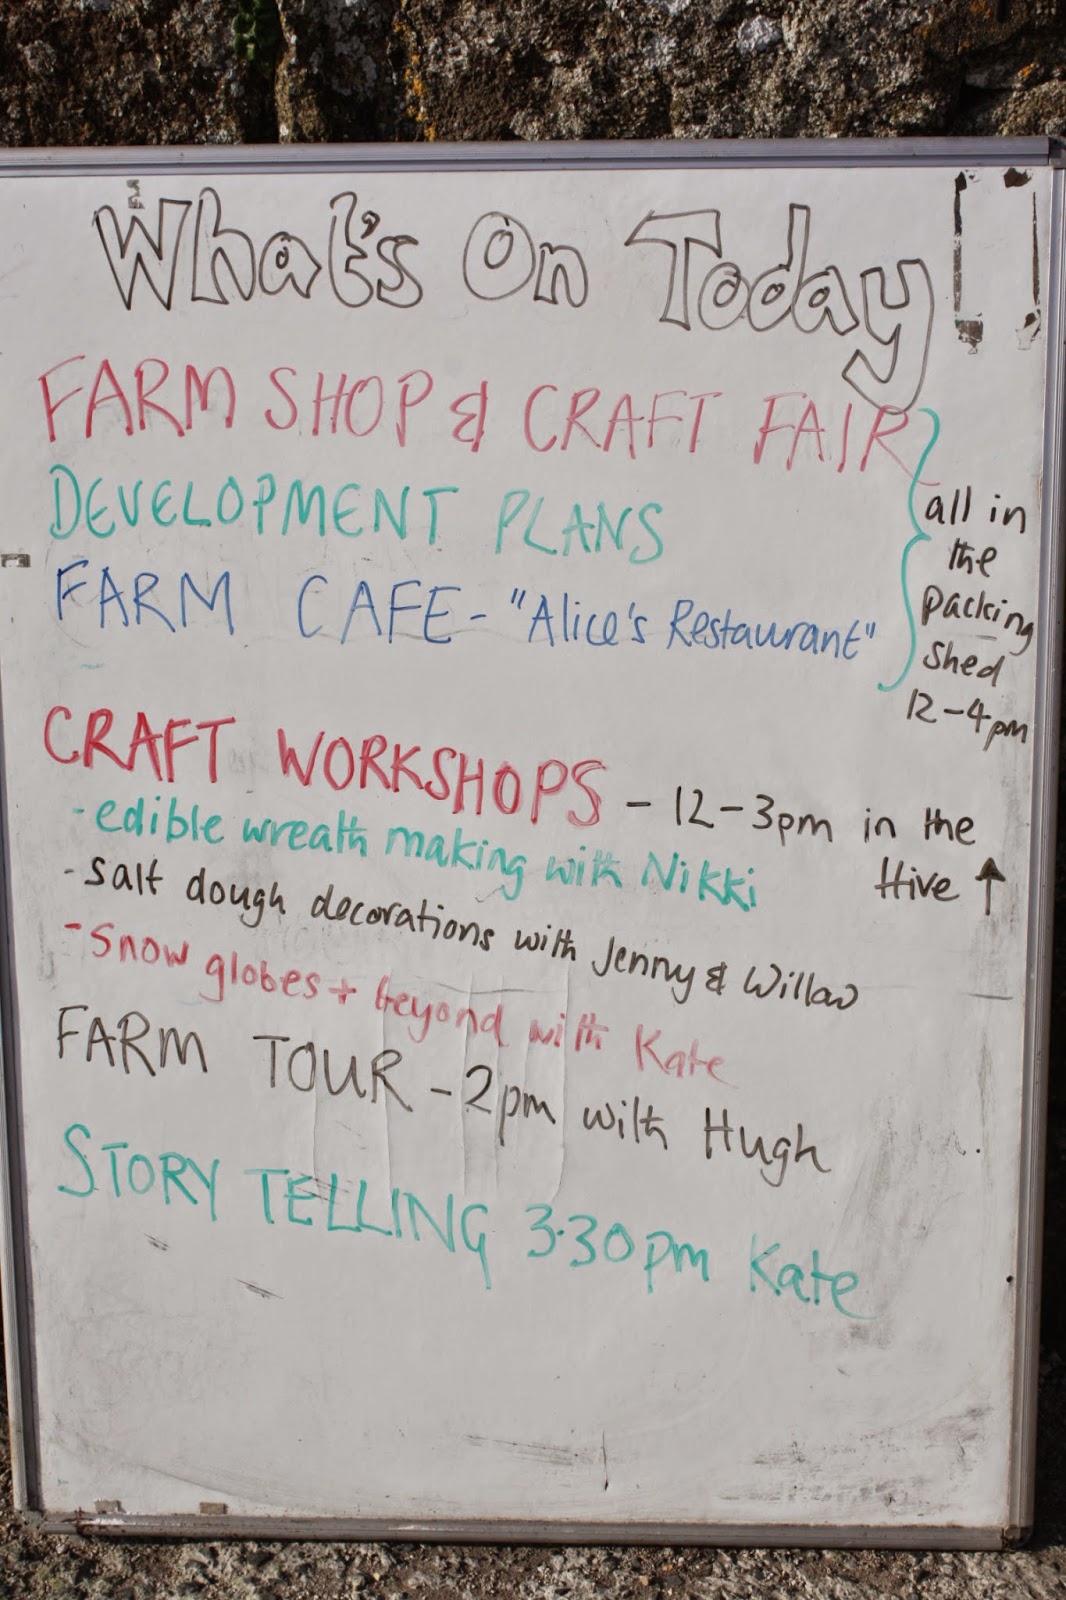 What's On Today
FARM SHOP & CRAFT FAIR
DEVELOPMENT PLANS
FARM CAFE - "Alice's Restaurant"
all in
the
packing
shed
12-4pm
CRAFT WORKSHOPS - 12-3pm in the
Hive ↑
- edible wreath making with Nikki
- salt dough decorations with Jenny & Willow
- snow globes + beyond with Kate
FARM TOUR - 2pm with Hugh
STORY TELLING 3.30pm Kate